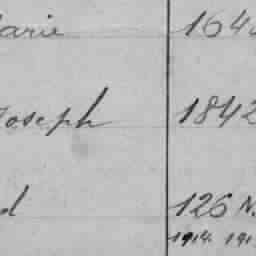 arie 164
Joseph 1842
d 126 N.
1914. 191